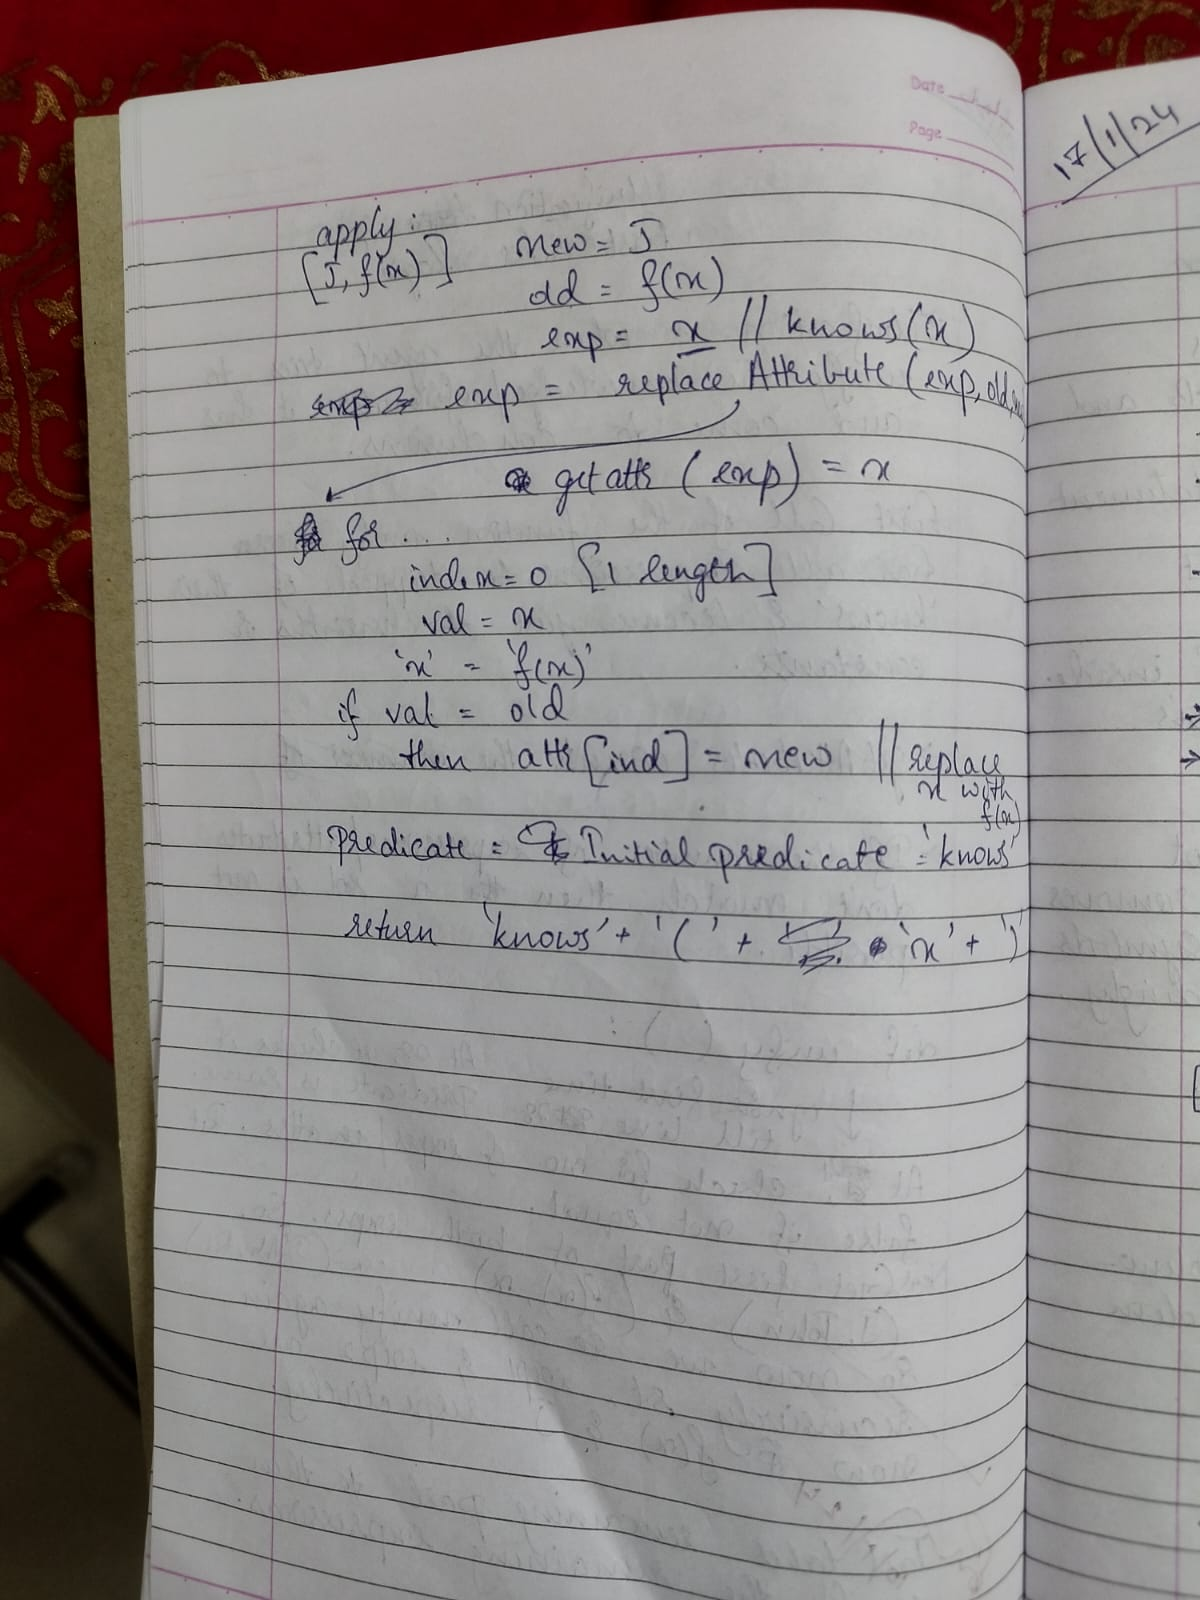 Date
Page
17/1/24
apply:
[J, f(x)] new = J
old = f(x)
exp = x // knows(x)
exp = replace Attribute (exp, old,
get atts (exp) = x
for ...
index = 0 [1 length]
val = x
'x' = 'f(x)'
if val = old
then atts [ind] = new // replace
x with
f(x)
predicate = Initial predicate = 'knows'
return 'knows' + '(' + 'x' + ')'